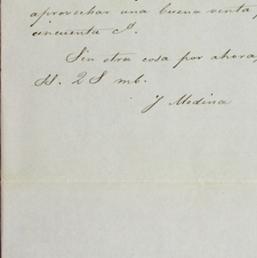 aprovechar una buena venta
cincuenta c/.
Sin otra cosa por ahora,
S. mb.
J Medina